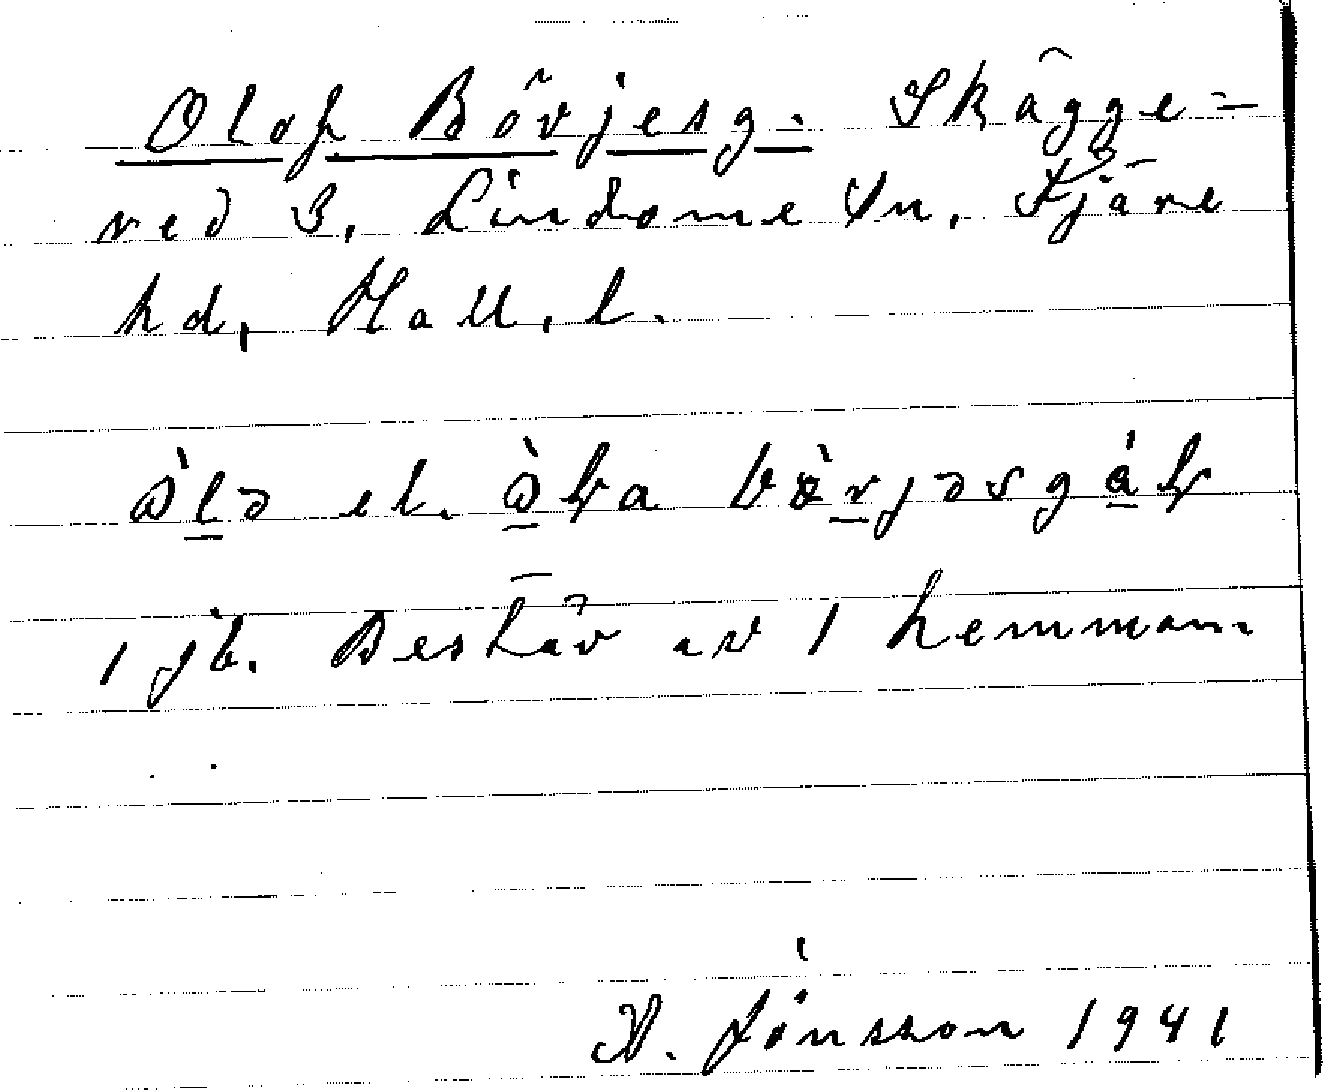 Olof Börjesg. Skägge=
red 3, Lindome sn, Fjäre
hd, Hall. l.
el.
1 jb. Består av 1 hemman.
H. Jönsson 1941